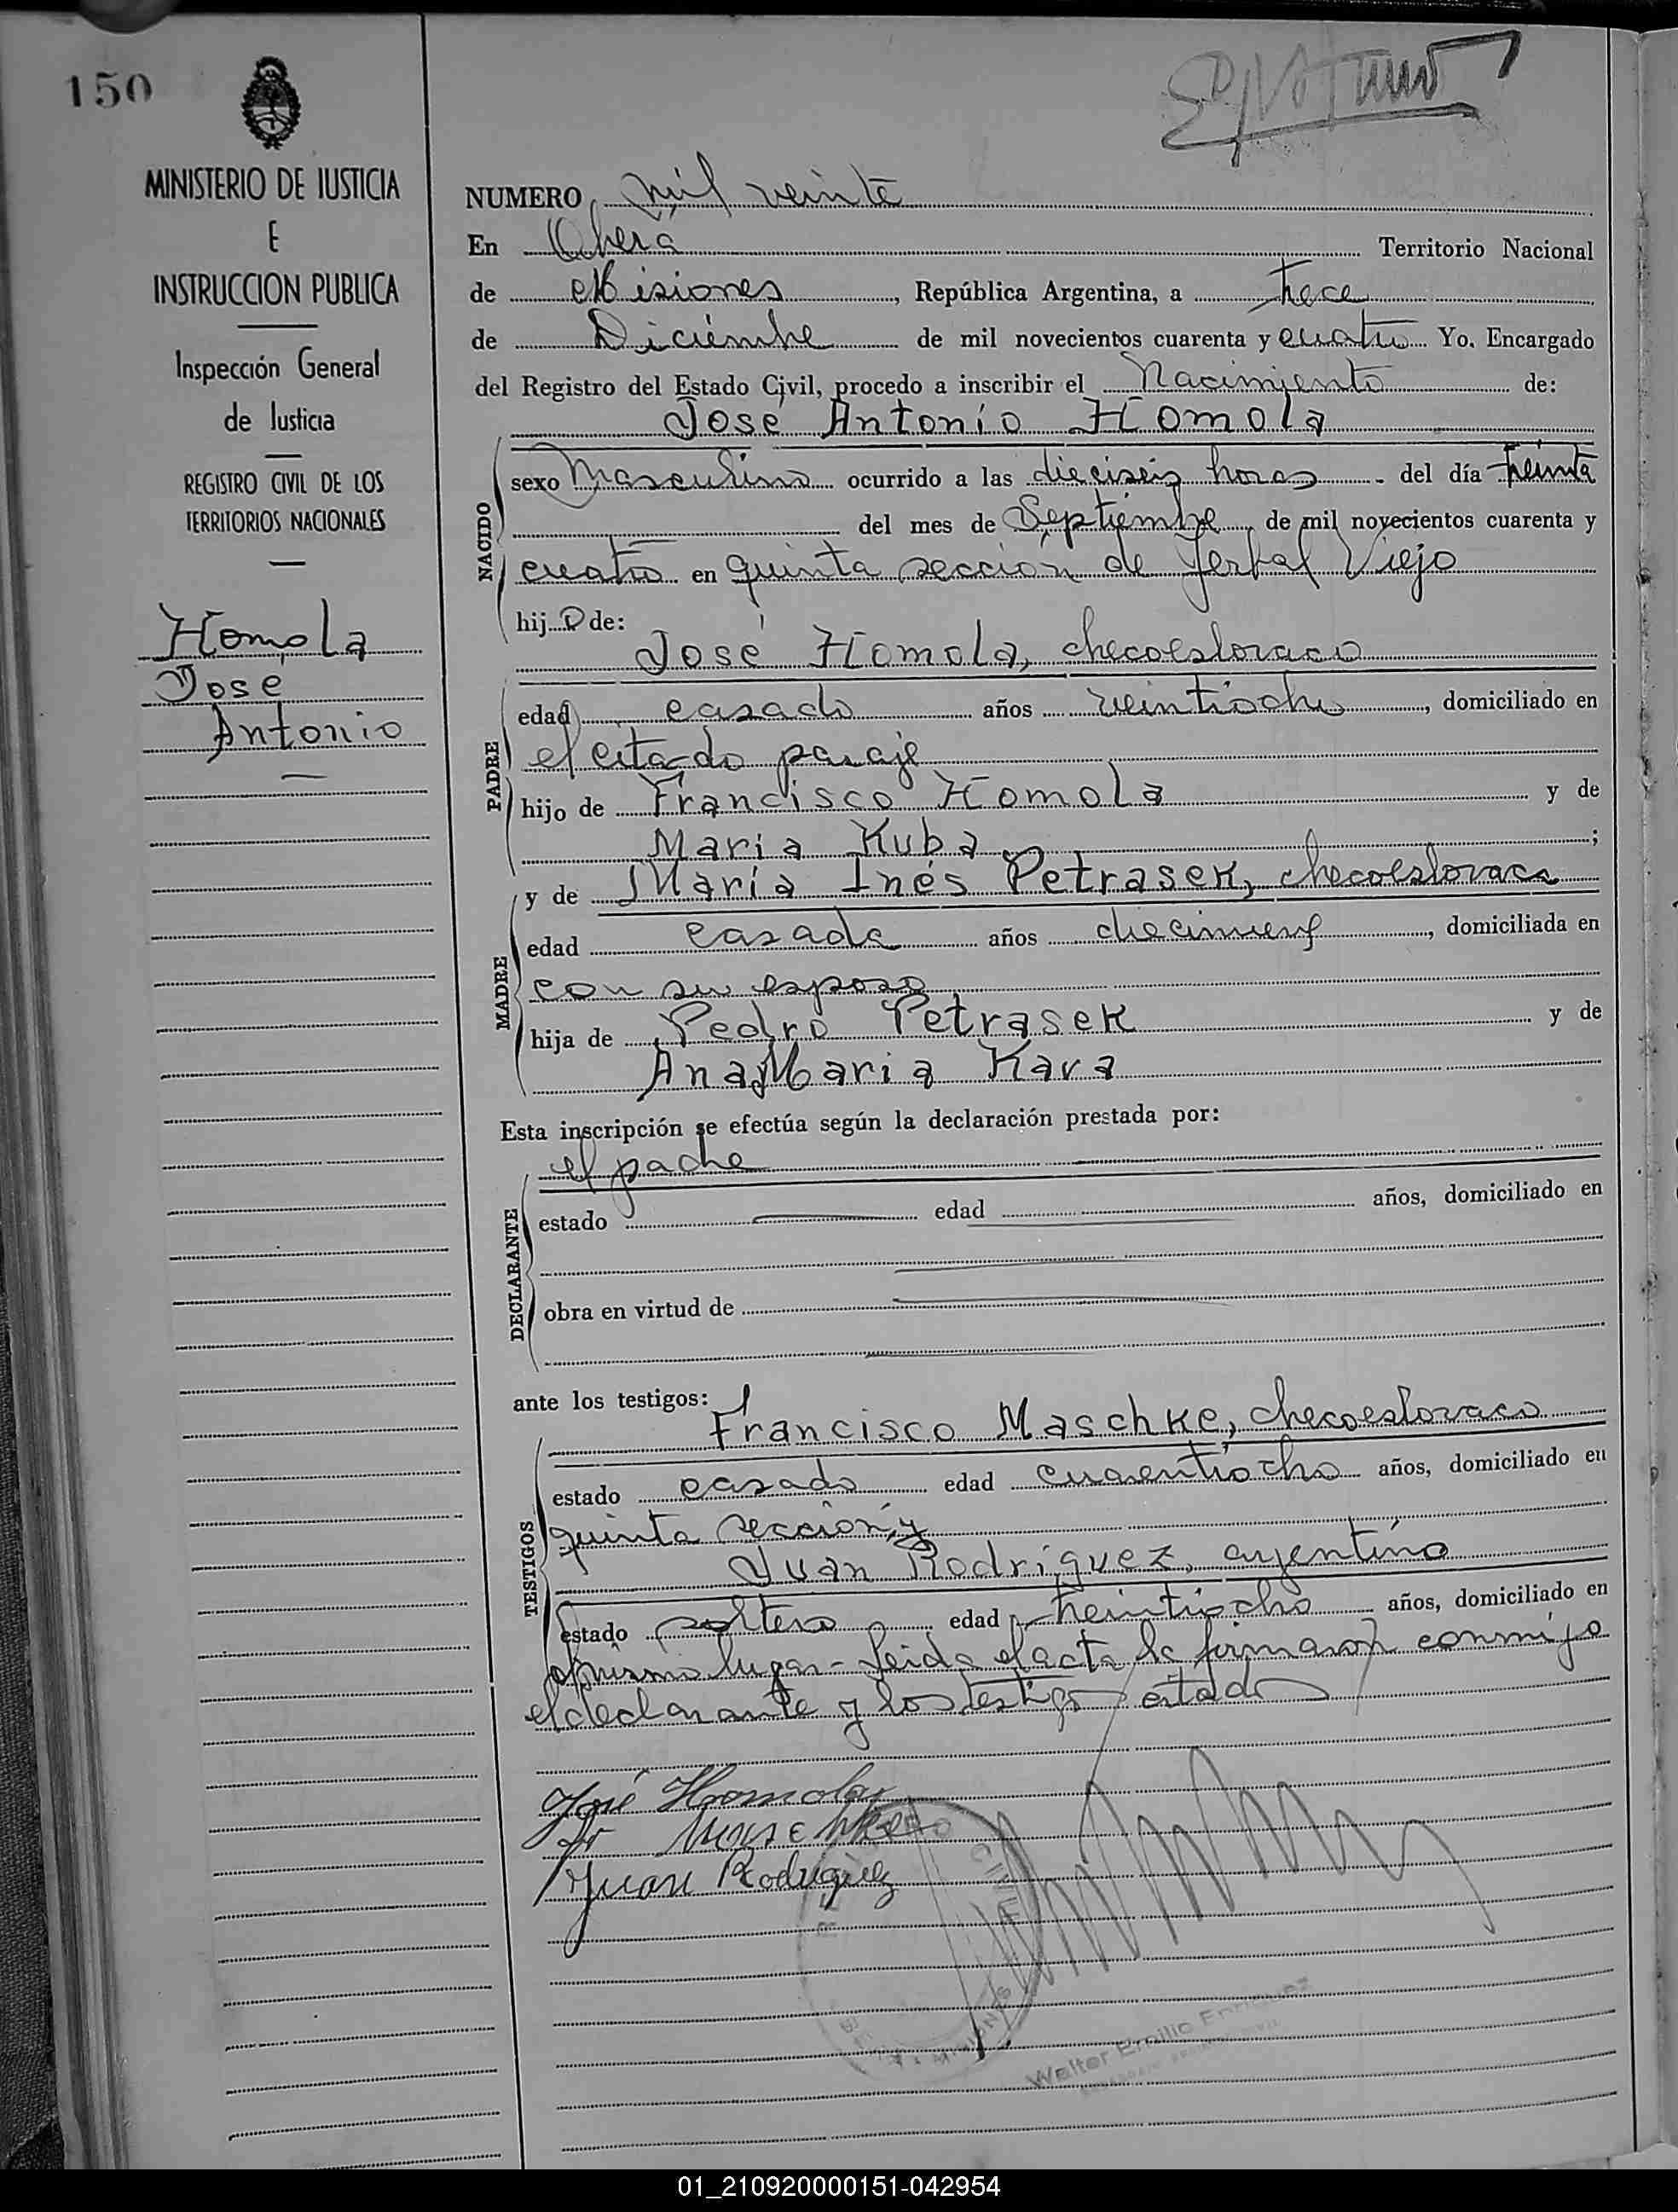 150
MINISTERIO DE JUSTICIA
E
INSTRUCCION PUBLICA
Inspección General
de Justicia
REGISTRO CIVIL DE LOS
TERRITORIOS NACIONALES
Homola
José
Antonio
NUMERO mil veinte
En Oberá Territorio Nacional
de Misiones, República Argentina, a trece
de Diciembre de mil novecientos cuarenta y cuatro Yo. Encargado
del Registro del Estado Civil, procedo a inscribir el Nacimiento de:
José Antonio Homola
NACIDO
sexo Masculino ocurrido a las dieciseis horas del día treinta
del mes de Septiembre de mil novecientos cuarenta y
cuatro en quinta sección de Yerbal Viejo
hijo de:
José Homola, checoeslovaco
PADRE
edad casado años veintiocho, domiciliado en
el citado paraje
hijo de Francisco Homola y de
Maria Kuba;
MADRE
y de María Inés Petrasek, checoeslovaca
edad casada años diecinueve, domiciliada en
con su esposo
hija de Pedro Petrasek y de
Ana Maria Kara
Esta inscripción se efectúa según la declaración prestada por:
DECLARANTE
el padre
estado edad años, domiciliado en
obra en virtud de
ante los testigos:
TESTIGOS
Francisco Maschke, checoeslovaco
estado casado edad cuarentiocho años, domiciliado en
quinta sección, y
Juan Rodriguez, argentino
estado soltero edad treintiocho años, domiciliado en
el mismo lugar - Leida el acta la firmaron conmigo
el declarante y los testigos citados
José Homola
Fr Maschke
Juan Rodriguez
Walter Emilio Enriquez
01_210920000151-042954